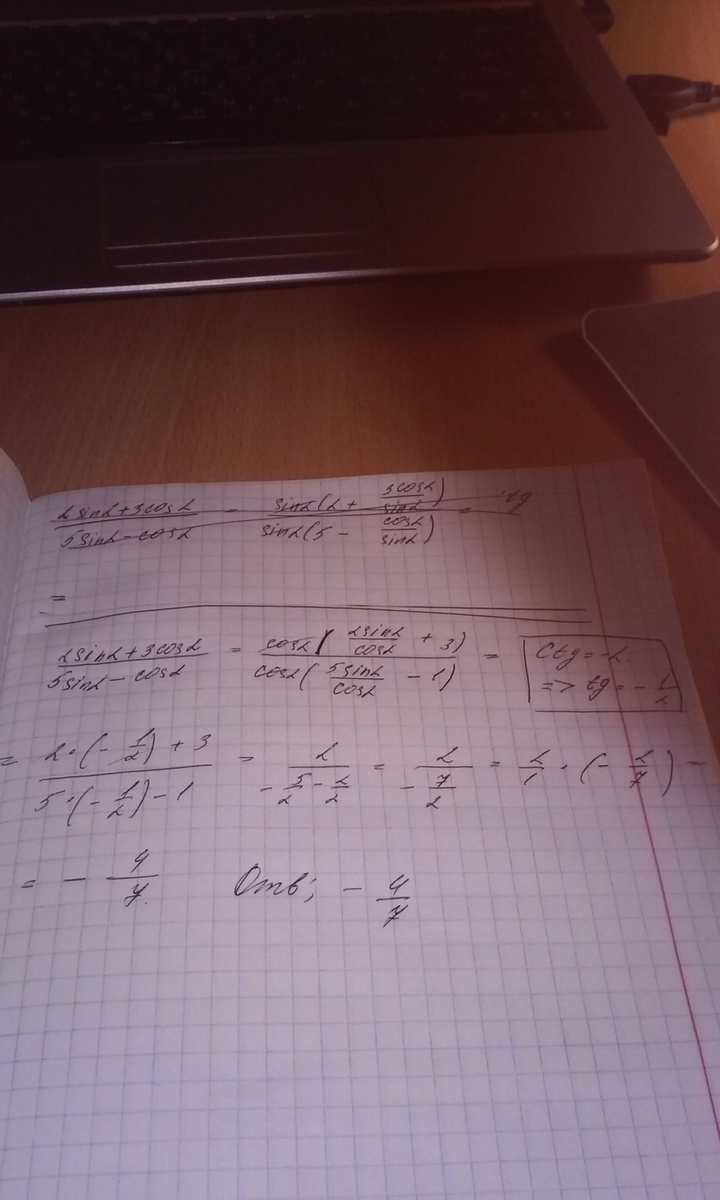 (2sinα+3cosα)/(5sinα−cosα) = sinα(2 + 3cosα/sinα)/sinα(5 − cosα/sinα) = tg
=
(2sinα+3cosα)/(5sinα−cosα) = cosα(2sinα/cosα + 3)/cosα(5sinα/cosα − 1) = Ctg=-2. => tg=-1/2
= (2·(-1/2)+3)/(5·(-1/2)-1) = 2/(-5/2-2/2) = 2/(-7/2) = 2/1·(-2/7) =
= -4/7. Отв; -4/7